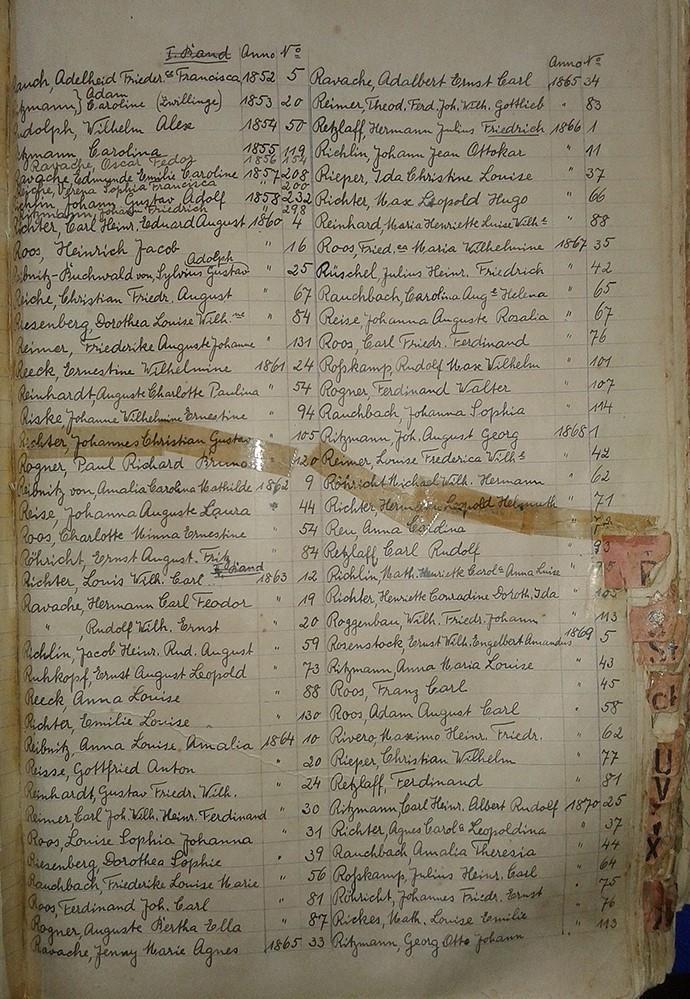 I. Band Anno No
auch, Adelheid Frieder.ca Francisca 1852 5
Adam
tzmann, } Caroline (Zwillinge) 1853 20
udolph, Wilhelm Alex 1854 50
tzmann Carolina 1855 119
Ravache, Oscar Fedor 1856 154
Ravache, Edmunde Emilie Caroline 1857 208
Reiche, Verena Sophia Francisca " 200
Richlin, Johann Gustav Adolf 1858 232
Ritzmann, Johann Friedrich 298
Richter, Carl Heinr. Eduard August 1860 4
Roos, Heinrich Jacob " 16
Adolph
eibnitz-Buchwald von, Sylvius Gustav " 25
Reiche, Christian Friedr. August " 67
Riesenberg, Dorothea Louise Wilh.ne " 84
Reimer, Friederike Auguste Johanne " 131
Reeck, Ernestine Wilhelmine 1861 24
Reinhardt, August Charlotte Paulina " 54
Riske Johanne Wilhelmine Ernestine " 94
Richter, Johannes Christian Gustav " 105
Rogner, Paul Richard Bruno " 120
Reibnitz von, Amalia Carolina Mathilde 1862 9
Reise, Johanna Auguste Laura " 44
Roos, Charlotte Minna Ernestine " 54
Röhricht, Ernst August Fritz " 84
II. Band
Richter, Louis Wilh. Carl 1863 12
Ravache, Hermann Carl Feodor " 19
" , Rudolf Wilh. Ernst " 20
Richlin, Jacob Heinr. Rud. August " 59
Ruhkopf, Ernst August Leopold " 73
Reeck, Anna Louise " 88
Richter, Emilie Louise " 130
Reibnitz, Anna Louise Amalia 1864 10
Reisse, Gottfried Anton " 20
Reinhardt, Gustav Friedr. Wilh. " 24
Reimer Carl Joh. Wilh. Heinr. Ferdinand " 30
Roos, Louise Sophia Johanna " 31
Riesenberg, Dorothea Sophie " 39
Rauchbach, Friederike Louise Marie " 56
Roos, Ferdinand Joh. Carl " 81
Rogner, Auguste Bertha Ella " 87
Ravache, Jenny Marie Agnes 1865 33
Anno No
Ravache, Adalbert Ernst Carl 1865 34
Reimer, Theod. Ferd. Joh. Wilh. Gottlieb " 83
Retzlaff Hermann Julius Friedrich 1866 1
Richlin Johann Jean Ottokar " 11
Rieper, Ida Christine Louise " 37
Richter, Max Leopold Hugo " 66
Reinhard, Maria Henriette Luise Wilh.e " 88
Roos, Fried.ca Maria Wilhelmine 1867 35
Rüschel, Julius Heinr. Friedrich " 42
Rauchbach, Carolina Aug.e Helena " 65
Reise, Johanna Auguste Rosalia " 67
Roos, Carl Friedr. Ferdinand " 76
Roßkamp, Rudolf Max Wilhelm " 101
Rogner, Ferdinand Walter " 107
Rauchbach, Johanna Sophia " 114
Ritzmann, Joh. August Georg 1868 1
Reimer, Louise Frederica Wilh.e " 42
Röhricht Michael Wilh. Hermann " 62
Richter, Leopold Helmuth " 71
Reu, Anna "
Retzlaff Carl Rudolf " 93
Richlin, Math. Henriette Carol.a Anna Luise "
Richter, Henriette Conradine Doroth. Ida " 105
Roggenbau, Wilh. Friedr. Johann " 113
Rosenstock, Ernst Wilh. Engelbert Amandus 1869 5
Ritzmann, Anna Maria Louise " 43
Roos, Franz Carl " 45
Roos, Adam August Carl " 58
Rivero, Maximo Heinr. Friedr. " 62
Rieper, Christian Wilhelm " 77
Retzlaff, Ferdinand " 81
Ritzmann, Carl Heinr. Albert Rudolf 1870 25
Richter, Agnes Carol.a Leopoldina " 37
Rauchbach, Amalia Theresia " 44
Roßkamp, Julius Heinr. Carl " 64
Röhricht, Johannes Friedr. Ernst " 75
Rickes, Math. Louise Emilie " 76
Ritzmann, Georg Otto Johann " 113
St
UV
X